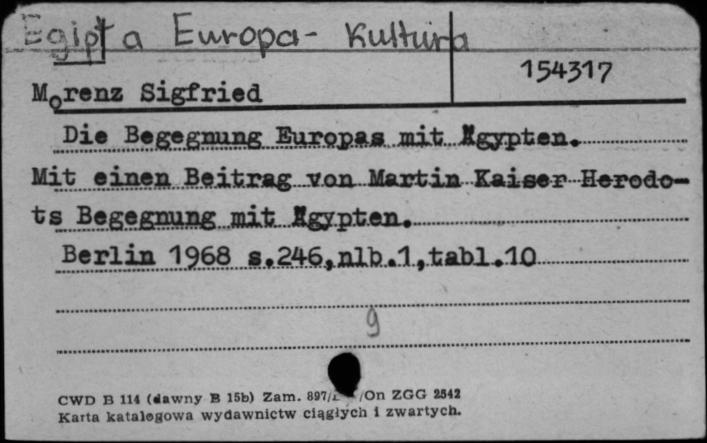 Egipt a Europa - Kultura
154317
Morenz Sigfried
Die Begegnung Europas mit Ägypten.
Mit einen Beitrag von Martin Kaiser Herodo-
ts Begegnung mit Ägypten.
Berlin 1968 s.246,nlb.1,tabl.10
9
CWD B 114 (dawny B 15b) Zam. 897/ /On ZGG 2542
Karta katalogowa wydawnictw ciągłych i zwartych.